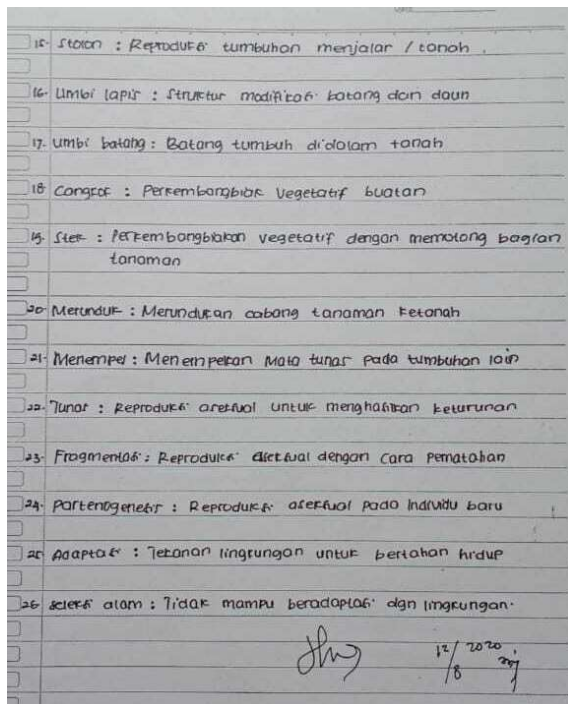 15. Stolon : Reproduksi tumbuhan menjalar / tanah.
16. Umbi lapis : Struktur modifikasi batang dan daun
17. Umbi batang : Batang tumbuh didalam tanah
18 Cangkok : Perkembangbiak Vegetatif buatan
19. Stek : Perkembangbiakan vegetatif dengan memotong bagian
tanaman
20. Merunduk : Merundukan cabang tanaman ketanah
21. Menempel : Menempelkan Mata tunas pada tumbuhan lain
22. Tunas : Reproduksi aseksual untuk menghasilkan keturunan
23. Fragmentasi : Reproduksi aseksual dengan cara pematahan
24. Partenogenesis : Reproduksi aseksual pada individu baru
25 Adaptasi : Tekanan lingkungan untuk bertahan hidup
26 seleksi alam : Tidak mampu beradaptasi dgn lingkungan.
12/8 2020